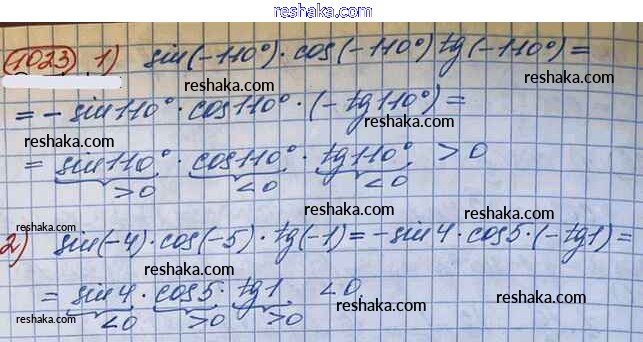 reshaka.com
1023 1) sin(-110°)·cos(-110°) tg(-110°) =
reshaka.com
reshaka.com
= -sin110°·cos110°·(-tg110°) =
reshaka.com
reshaka.com
= sin110°·cos110°·tg110° > 0
>0 <0 <0
reshaka.com
reshaka.com
reshaka.com
reshaka.com
2) sin(-4)·cos(-5)·tg(-1) = -sin4·cos5·(-tg1) =
reshaka.com
reshaka.com
= sin4·cos5·tg1 < 0.
<0 >0 >0
reshaka.com
reshaka.com
reshaka.com